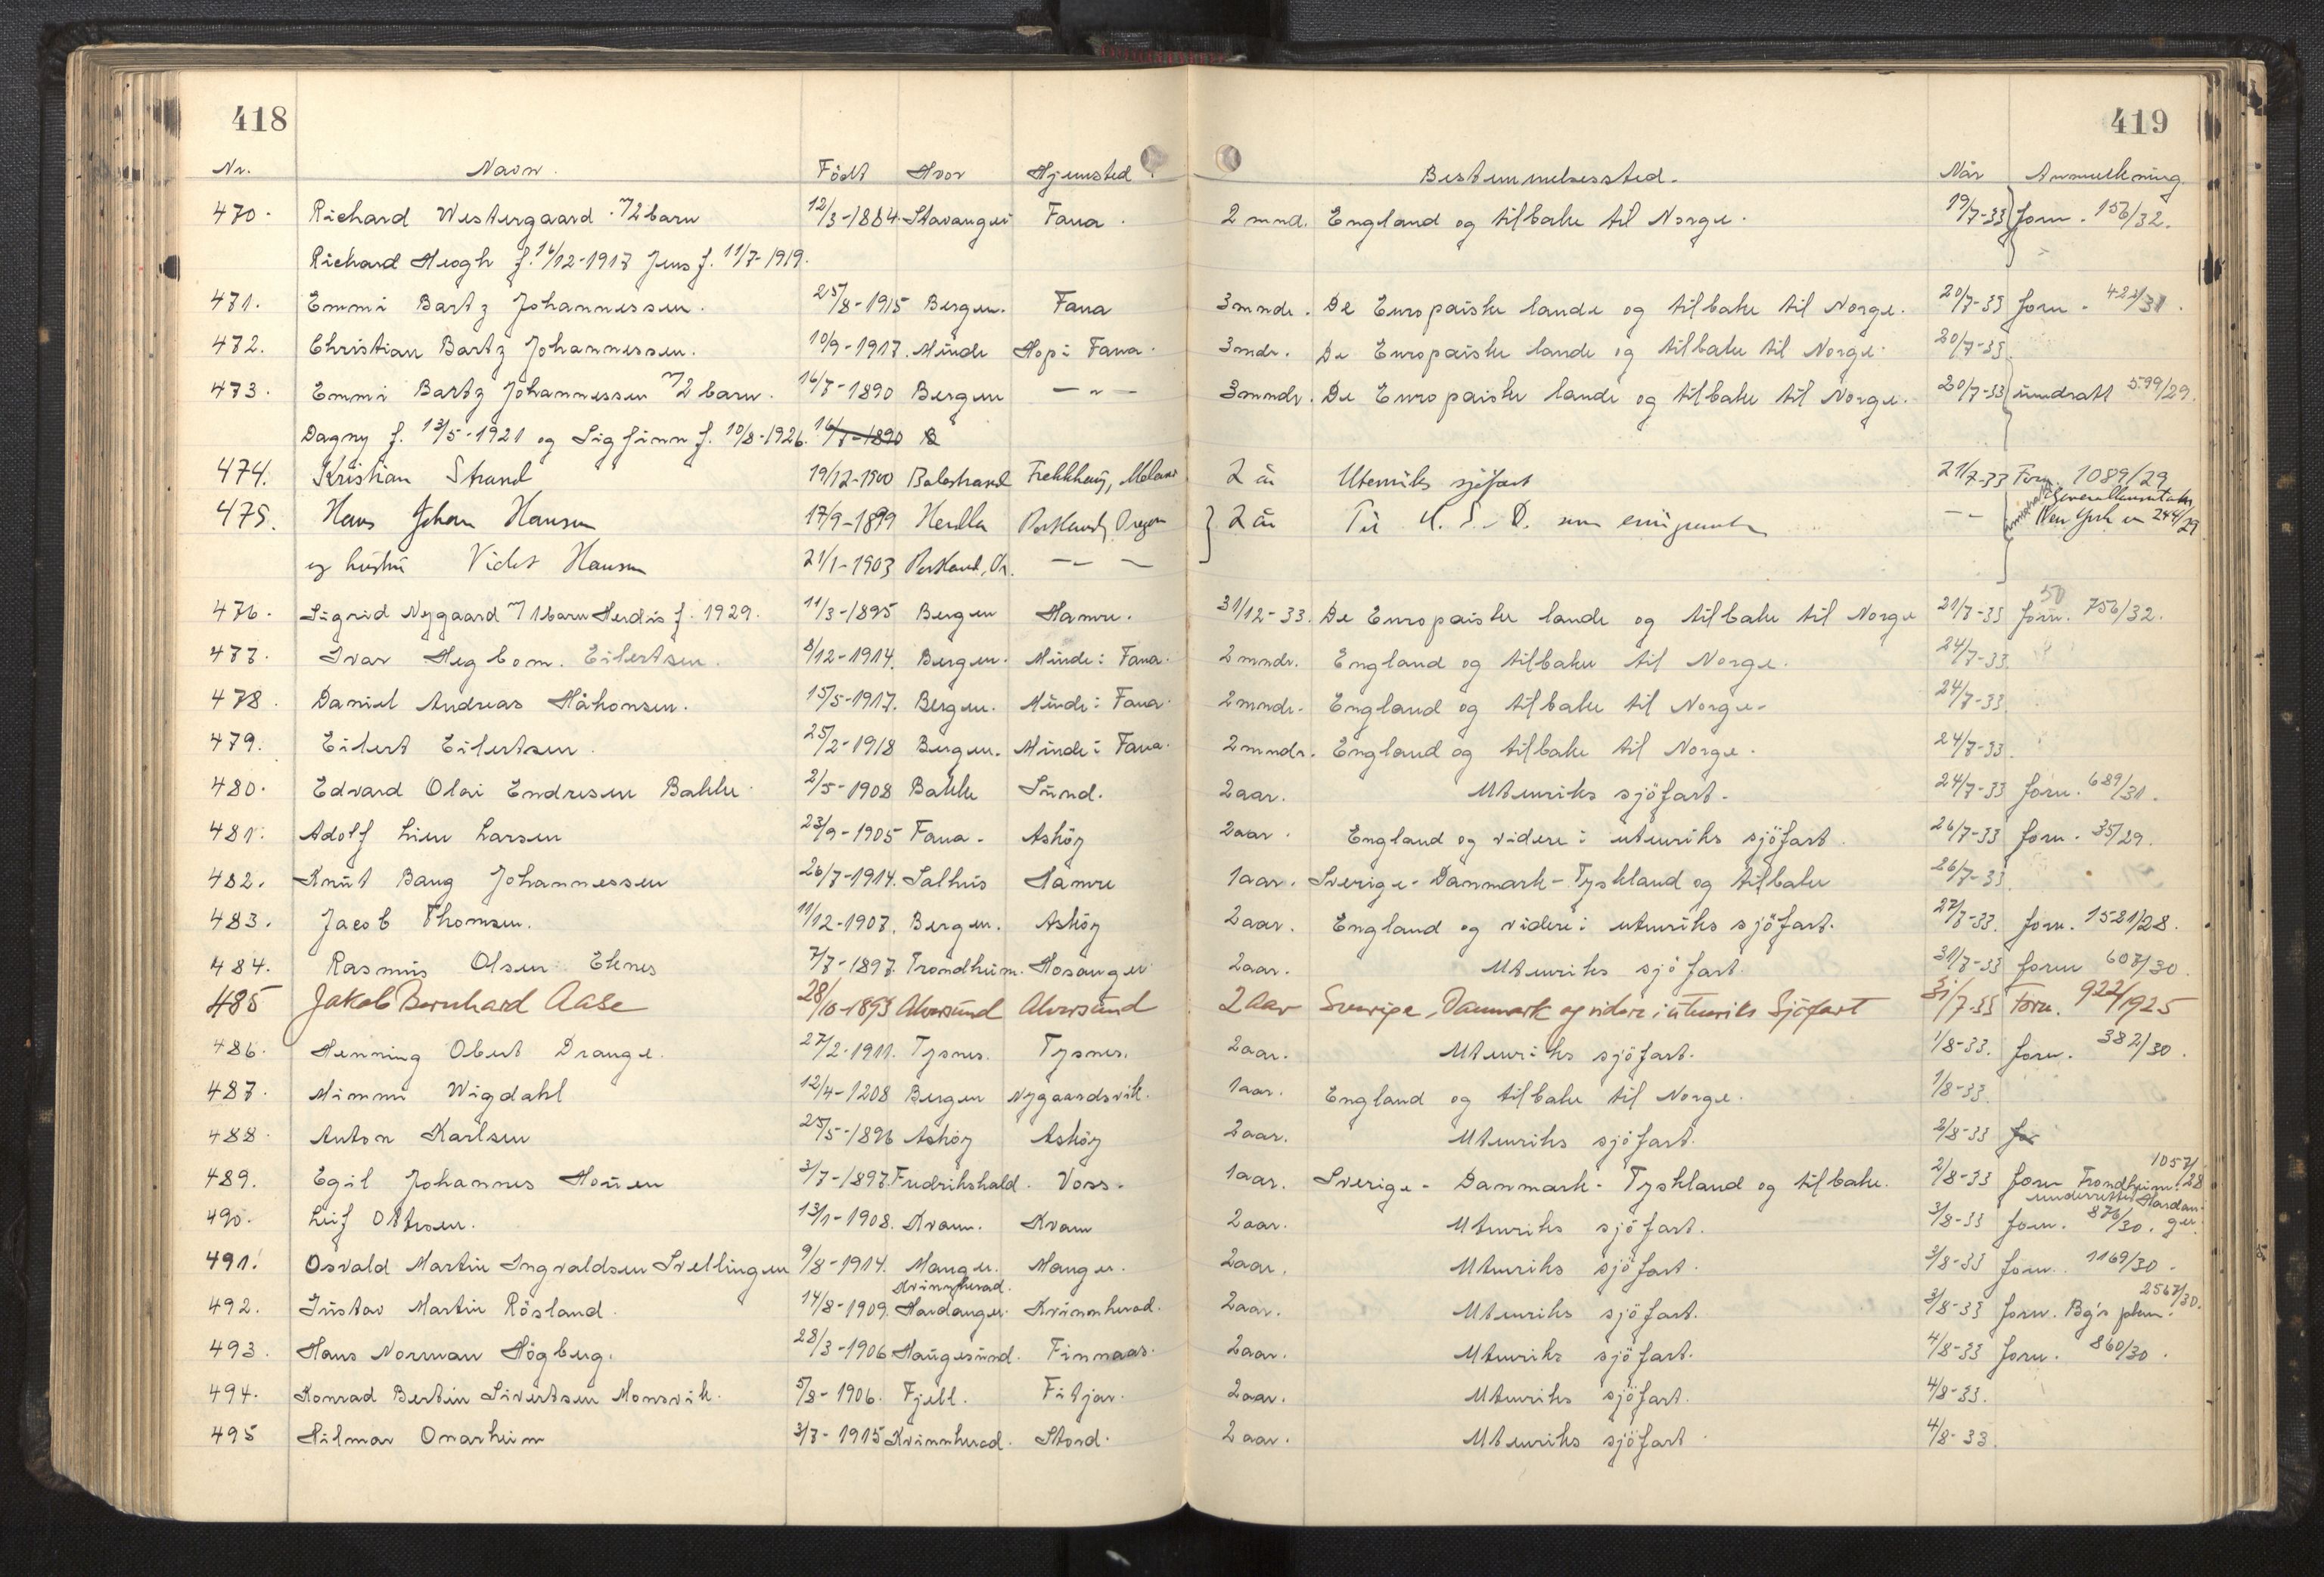 418
419
Nr. Navn. Födt Hvor Hjemsted. Bestemmelsessted. Når Anmerkning.
470. Richard Westergaard. m/2 barn 12/3-1884. Stavanger Fana. 2 mnd. England og tilbake til Norge. 19/7-33 forn. 156/32.
Richard Heogh f. 16/12-1917 Jens f. 11/7-1919.
471. Emmi Bartz Johannessen. 25/8-1915 Bergen. Fana 3mndr. De Europaiske lande og tilbake til Norge. 20/7-33 forn. 421/31.
472. Christian Bartz Johannessen. 10/9-1917. Minde Hop i Fana. 3mdr. De Europaiske lande og tilbake til Norge. 20/7-33.
473. Emmi Bartz Johannessen m/2 barn. 16/7-1890 Bergen — " — 3mndr. De Europaiske lande og tilbake til Norge. 20/7-33 inndratt 599/29.
Dagny f. 13/5-1921 og Sigfinn f. 10/8-1926. 16/7-1890 B
474. Kristian Strand 19/12-1900 Balestrand Frekkhaug, Meland 2 år Utenriks sjöfart 21/7-33 Forn. 1089/29
475. Hans Johan Hansen 17/9-1899 Herdla Portland, Oregon 2 år Til U.S.A. som emigranter — " — inndratt Generalkonsulatet New York nr 244/29
og hustru Violet Hansen 21/1-1903 Portland, Or. — " —
476. Sigrid Nygaard m/1 barn Herdis f. 1929. 11/3-1895 Bergen Hamre. 31/12-33. De Europaiske lande og tilbake til Norge 21/7-33 forn. 756/32. 50
477. Ivar Hegbom. Eilertsen. 8/12-1914. Bergen. Minde i Fana. 2mndr. England og tilbake til Norge. 24/7-33.
478. Daniel Andreas Håkonsen. 15/5-1917. Bergen. Minde i Fana. 2mndr. England og tilbake til Norge. 24/7-33.
479. Eilert Eilertsen. 25/2-1918 Bergen. Minde i Fana. 2mndr. England og tilbake til Norge. 24/7-33.
480. Edvard Olai Endresen Bakke. 2/5-1908 Bakke Sund. 2aar. Utenriks sjöfart. 24/7-33 forn. 689/31.
481. Adolf Lien Larsen 23/9-1905 Fana. Asköy 2aar. England og videre i utenriks sjöfart. 26/7-33 forn. 35/29.
482. Knut Bang Johannessen 26/7-1914. Salhus Hamre 1aar. Sverige - Danmark - Tyskland og tilbake 26/7-33.
483. Jacob Thomsen. 11/12-1907. Bergen. Asköy 2aar. England og videre i utenriks sjöfart. 27/7-33. forn. 1581/28.
484. Rasmus Olsen Eknes 7/7-1897. Trondheim. Hosanger 2aar. Utenriks sjöfart. 31/7-33 forn 607/30.
485 Jakob Bernhard Aase 28/10-1893 Alversund Alversund 2 Aar Sverige, Danmark og videre i utenriks Sjöfart 31/7-33 Forn. 922/1925
486. Henning Obert Drange. 27/2-1911. Tysnes. Tysnes. 2aar. Utenriks sjöfart. 1/8-33. forn. 382/30.
487. Mimmi Wigdahl 12/4-1208 Bergen Nygaardsvik. 1aar. England og tilbake til Norge. 1/8-33.
488. Anton Karlsen 25/5-1896 Asköy Asköy 2aar. Utenriks sjöfart. 2/8-33 for
489. Egil Johannes Houen 3/7-1897. Fredrikshald. Voss. 1aar. Sverige - Danmark - Tyskland og tilbake. 2/8-33 forn Trondheim 1057/28 underrettet Hardanger
490. Leif Ottesen. 13/1-1908. Kvam. Kvam 2aar. Utenriks sjöfart. 3/8-33 forn. 876/30.
491. Osvald Martin Ingvaldsen Svellingen 9/8-1914. Manger. Manger. 2aar. Utenriks sjöfart. 3/8-33 forn. 1169/30.
492. Gustav Martin Rösland. 14/8-1909. Kvinnherad. Hardanger. Kvinnherad. 2aar. Utenriks sjöfart. 3/8-33 forn. Bg's pkm. 2567/30.
493. Hans Norman Högberg. 28/3-1906 Haugesund. Finnaas. 2aar. Utenriks sjöfart. 4/8-33 forn. 860/30.
494. Konrad Bertin Sivertsen Monsvik. 5/8-1906. Fjell. Fitjar. 2aar. Utenriks sjöfart. 4/8-33.
495 Hilmar Onarheim 3/7-1915 Kvinnherad. Stord. 2 aar. Utenriks sjöfart. 4/8-33.